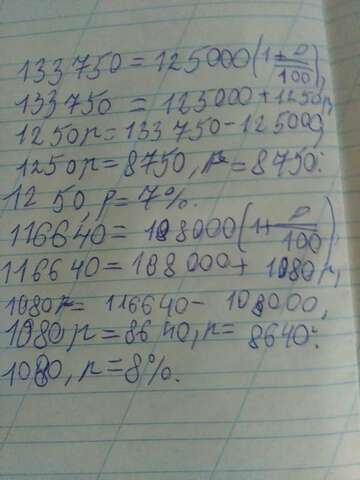 133750 = 125000(1+p/100),
133750 = 125000+1250p,
1250p=133750-125000,
1250p=8750, p=8750:
1250, p=7%.
116640=108000(1+p/100)
116640=108000+1080p,
1080p= 116640-108000,
1080p=8640, p= 8640:
1080, p=8%.